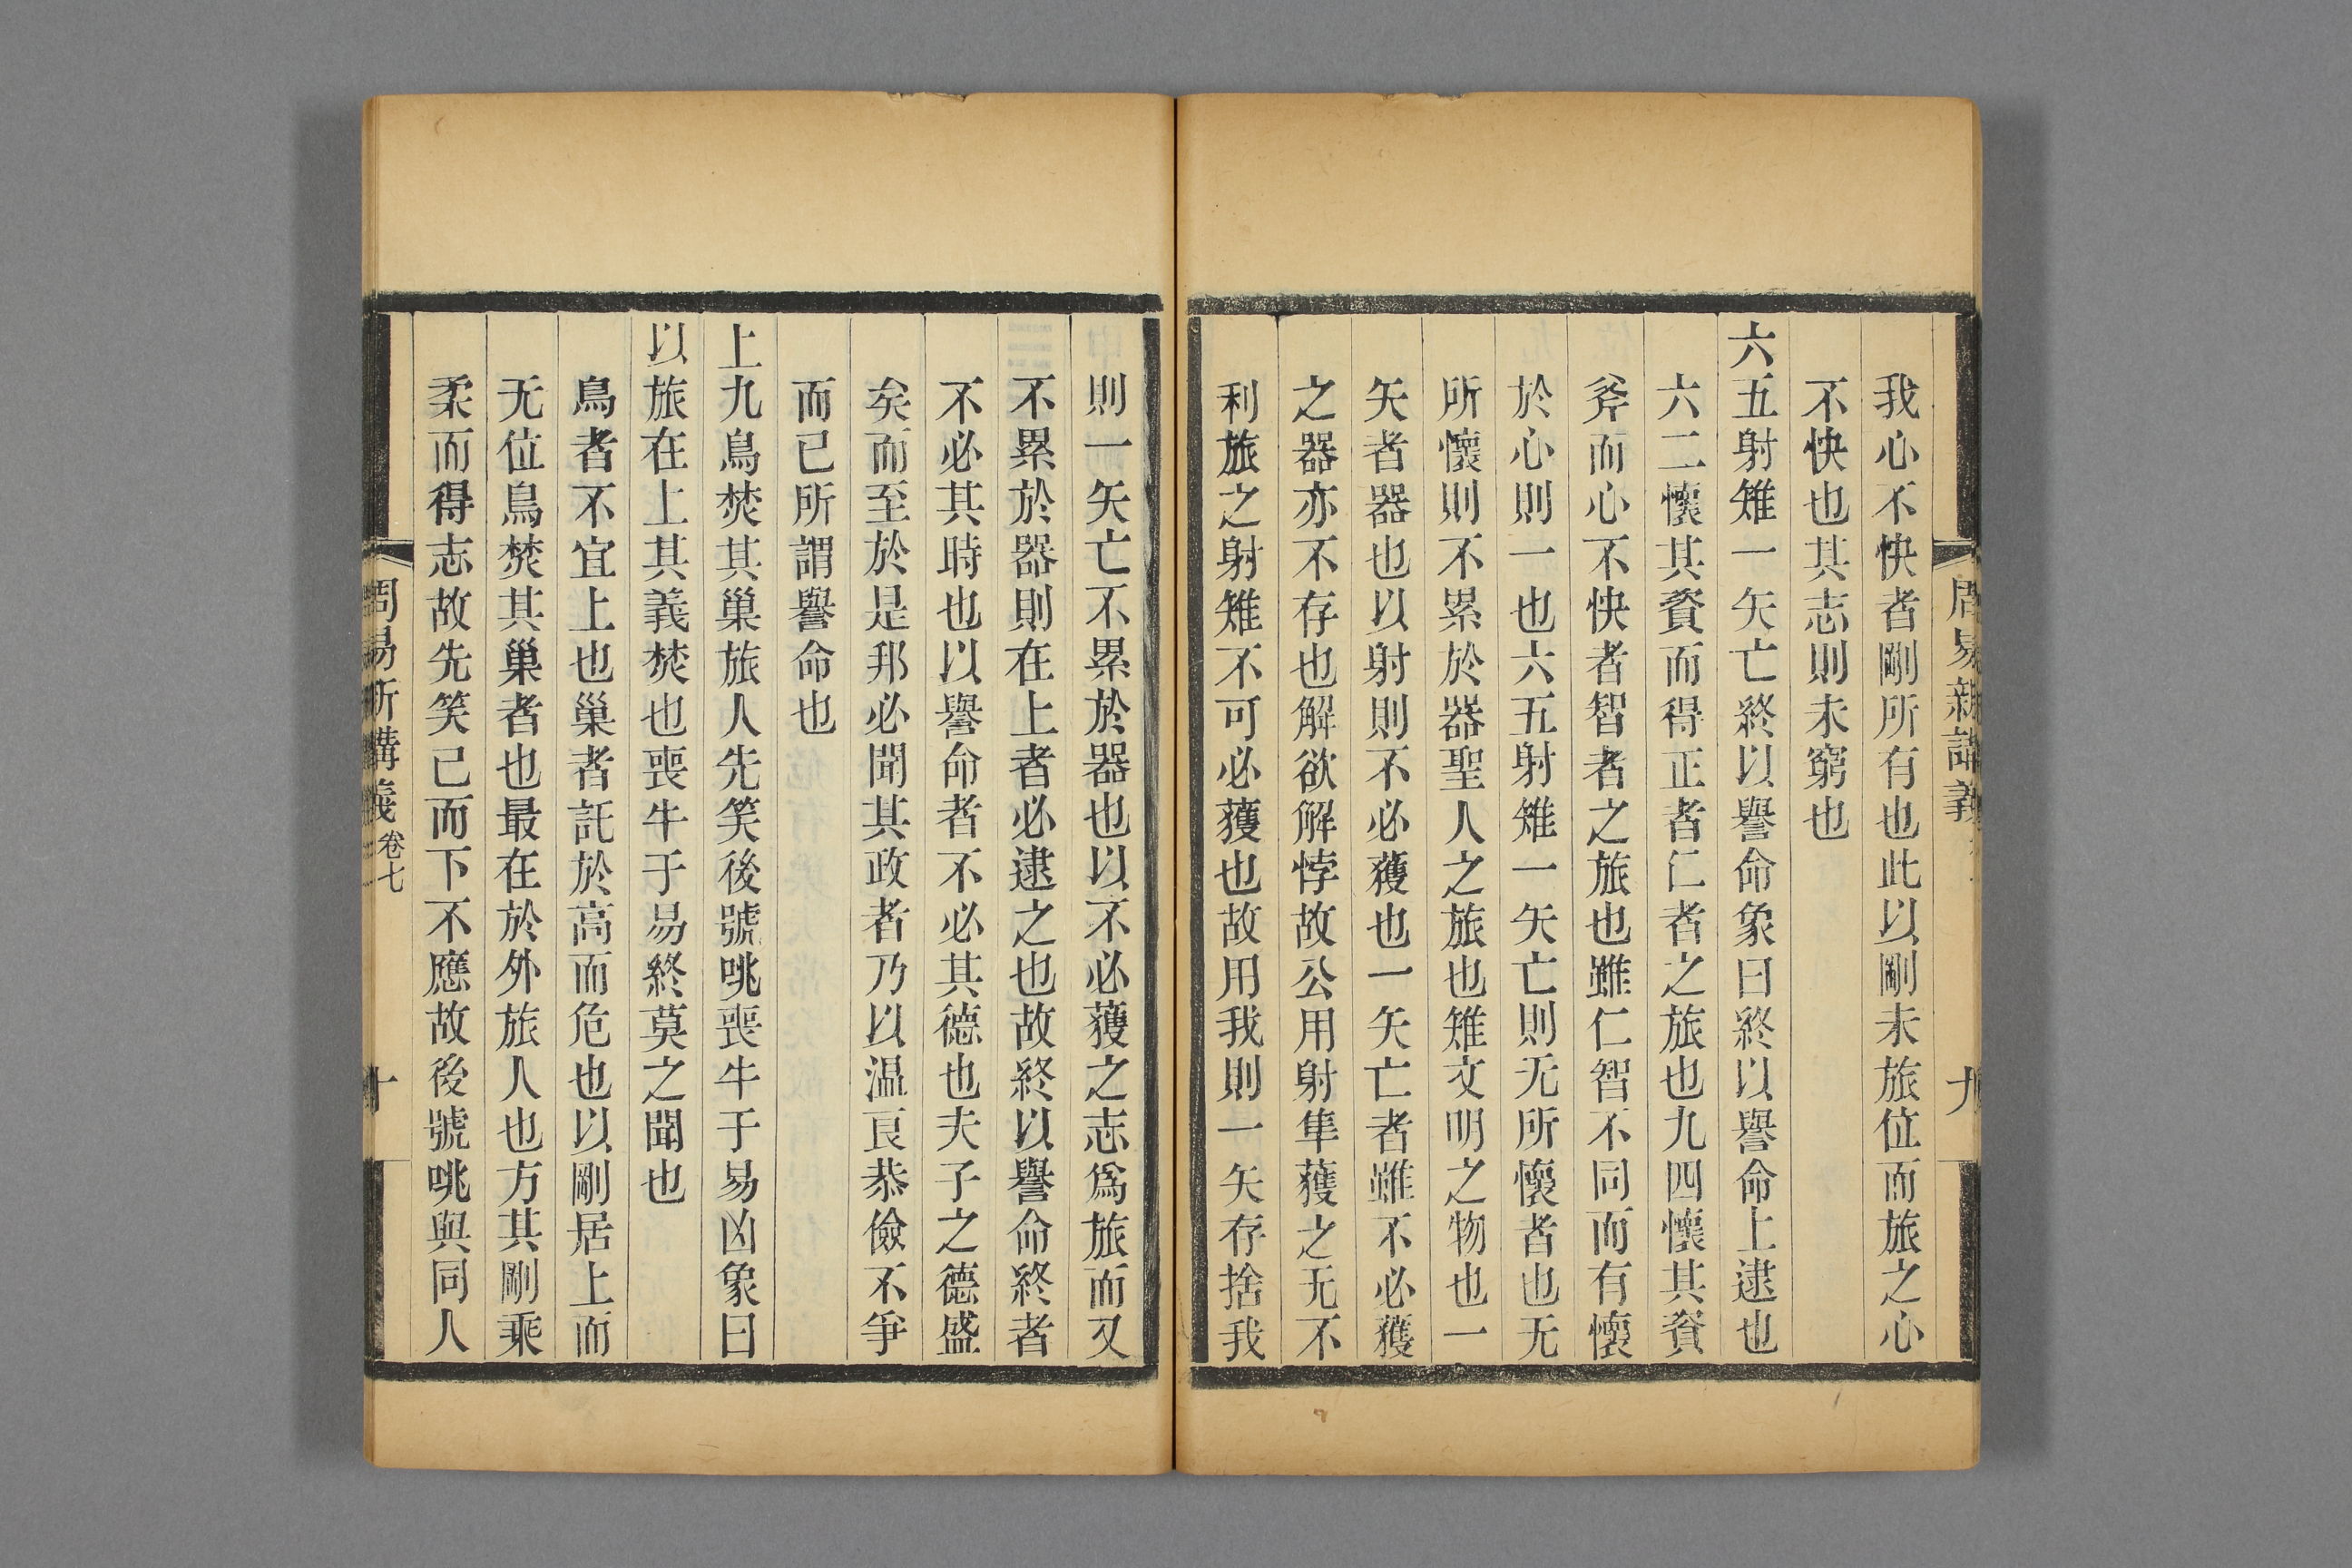 周易新講義
九
我心不快者剛所有也此以剛未旅位而旅之心
不快也其志則未窮也
六五射雉一矢亡終以譽命象曰終以譽命上逮也
六二懷其資而得正者仁者之旅也九四懷其資
斧而心不快者智者之旅也雖仁智不同而有懷
於心則一也六五射雉一矢亡則无所懷者也无
所懷則不累於器聖人之旅也雉文明之物也一
矢者器也以射則不必獲也一矢亡者雖不必獲
之器亦不存也解欲解悖故公用射隼獲之无不
利旅之射雉不可必獲也故用我則一矢存捨我
則一矢亡不累於器也以不必獲之志爲旅而又
不累於器則在上者必逮之也故終以譽命終者
不必其時也以譽命者不必其德也夫子之德盛
矣而至於是邦必聞其政者乃以温良恭儉不爭
而已所謂譽命也
上九鳥焚其巢旅人先笑後號咷喪牛于易凶象曰
以旅在上其義焚也喪牛于易終莫之聞也
鳥者不宜上也巢者託於高而危也以剛居上而
无位鳥焚其巢者也最在於外旅人也方其剛乘
柔而得志故先笑已而下不應故後號咷與同人
周易新講義 卷七
十